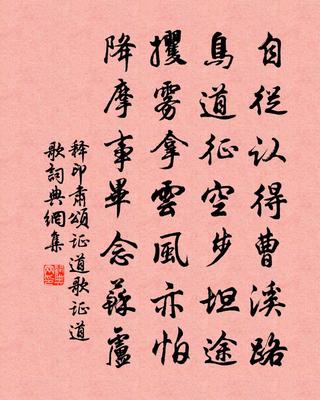 自從认得曹溪路
鳥道征空步坦途
攫雾拿雲風亦怕
降摩事畢念蘇盧
释印肃頌证道歌证道
歌詞典網集